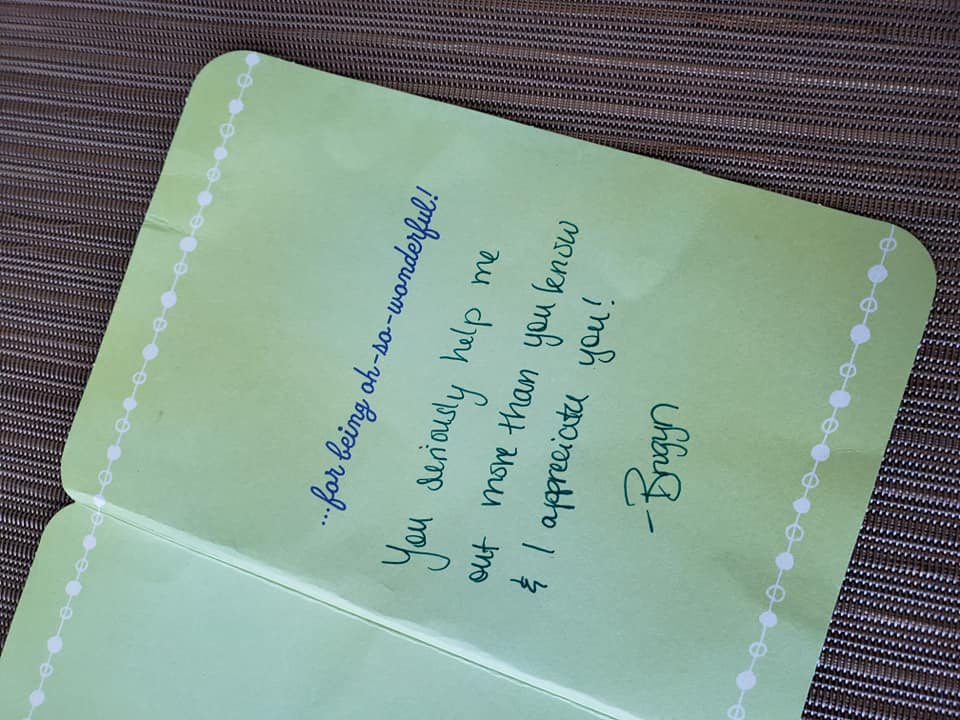 ...for being oh-so-wonderful!
You seriously help me
out more than you know
& I appreciate you!
-Brigyn